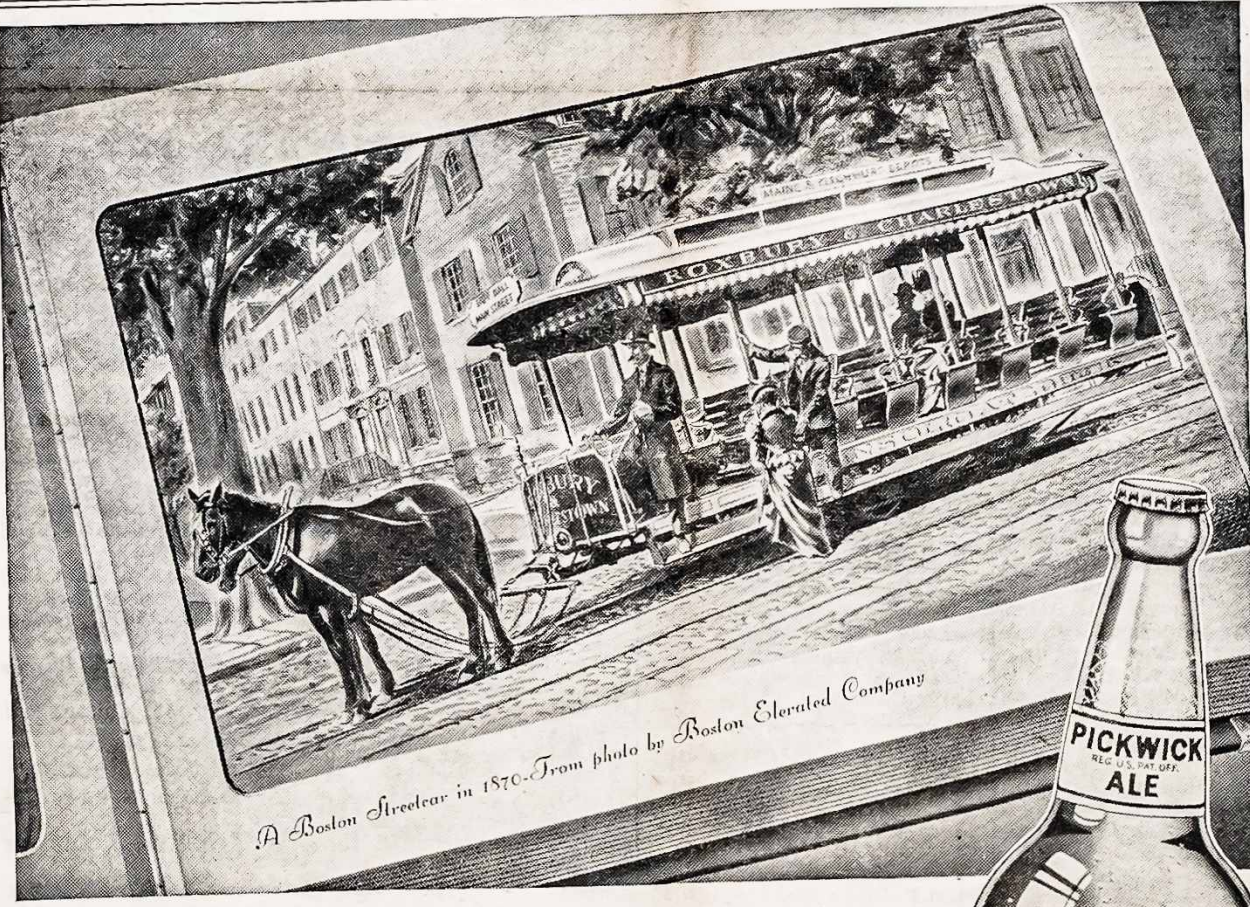 ROXBURY & CHARLESTOWN
MAIN STREET
BURY
&
ESTOWN
A Boston Streetcar in 1870-From photo by Boston Elevated Company
PICKWICK
REG. U.S. PAT. OFF.
ALE